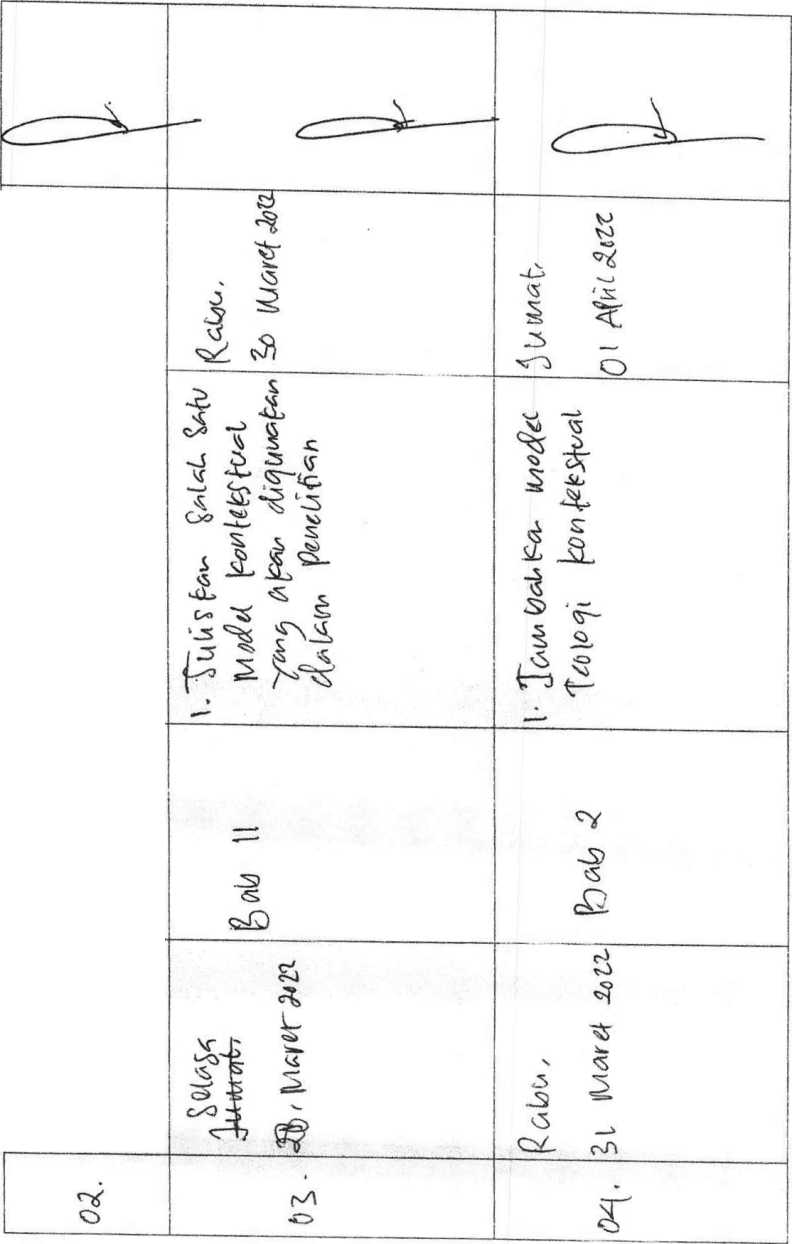 02.
03.
Selasa
Jumat,
Maret 2022
Bab II
1. Tuliskan Salah Satu
Model kontekstual
yang akan digunakan
dalam Penelitian
Rabu,
30 Maret 2022
04.
Rabu,
31 Maret 2022
Bab 2
1. Tambahkan model
Teologi kontekstual
Jumat,
01 April 2022